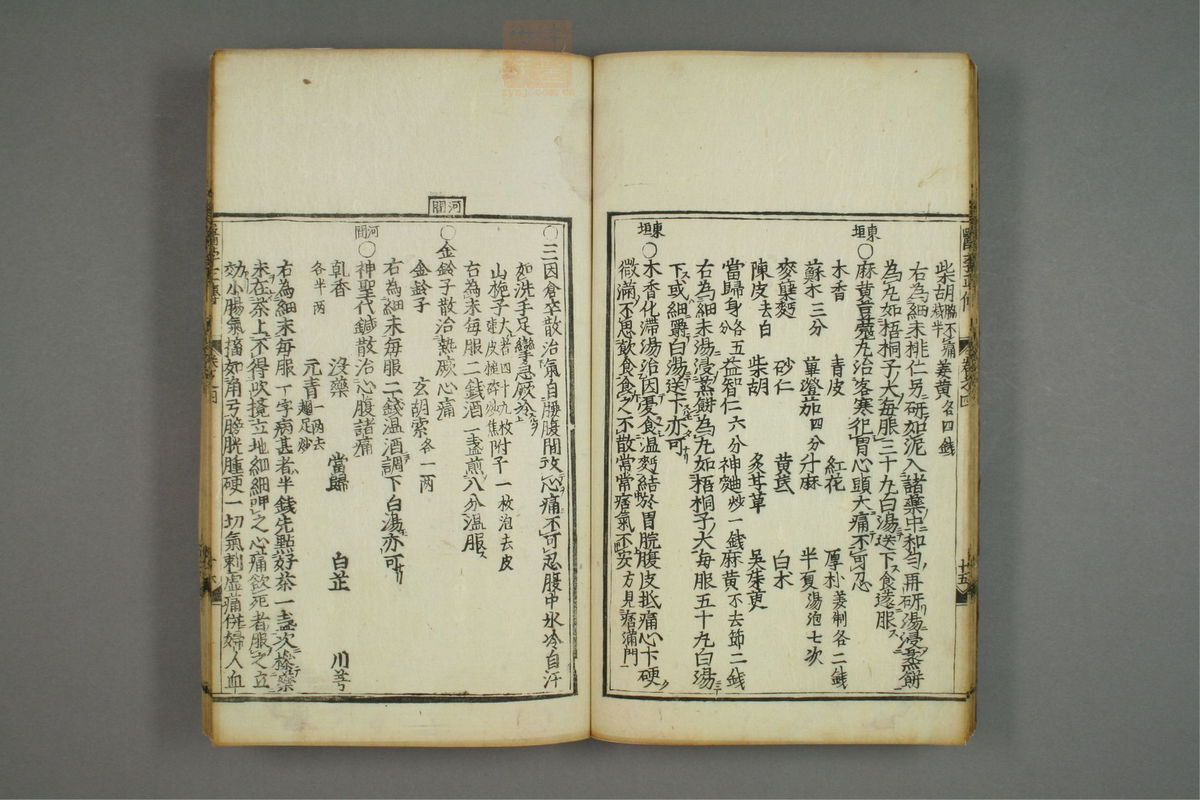 柴胡腦不寫秘半 姜黃各四錢
右為細末桃仁另研如泥入諸藥中和勻再研湯浸蒸餅
為丸如梧桐子大每服三十丸白湯送下食遠服
東垣
○麻黃荳蔻丸治客寒犯胃心頭大痛不可忍
木香 青皮 紅花 厚朴姜制各二錢
蘇木三分 蓽澄茄四分 升麻 半夏湯泡七次
麥糵麪 砂仁 黃芪 白朮
陳皮去白 柴胡 炙甘草 吳茱萸
當歸身各五分 益智仁六分 神麯炒一錢 麻黃不去節二錢
右為細末湯浸蒸餅為丸如梧桐子大每服五十丸白湯
下或細嚼白湯送下亦可
東垣
○木香化滯湯治因憂食溫麪結於胃脘腹皮抵痛心下硬
微滿不思飲食食之不散常常痞氣不安方見痞滿門
十五
○三因倉卒散治氣自腰腹間攻心痛不可忍腹中氷冷自汗
如洗手足攣急厥冷
山梔子大者四十九枚連皮搥碎炒焦 附子一枚泡去皮
右為末每服二錢酒一盞煎八分溫服
河間
○金鈴子散治熱厥心痛
金鈴子 玄胡索各一兩
右為細末每服二錢溫酒調下白湯亦可
河間
○神聖代鍼散治心腹諸痛
乳香 沒藥 當歸 白芷 川芎
各半兩 元青一兩去翅足炒
右為細末每服一字病甚者半錢先點好茶一盞次摻藥
末在茶上不得吹攪立地細細呷之心痛欲死者服之立
効小腸氣搐如角弓膀胱腫硬一切氣刺虛痛併婦人血